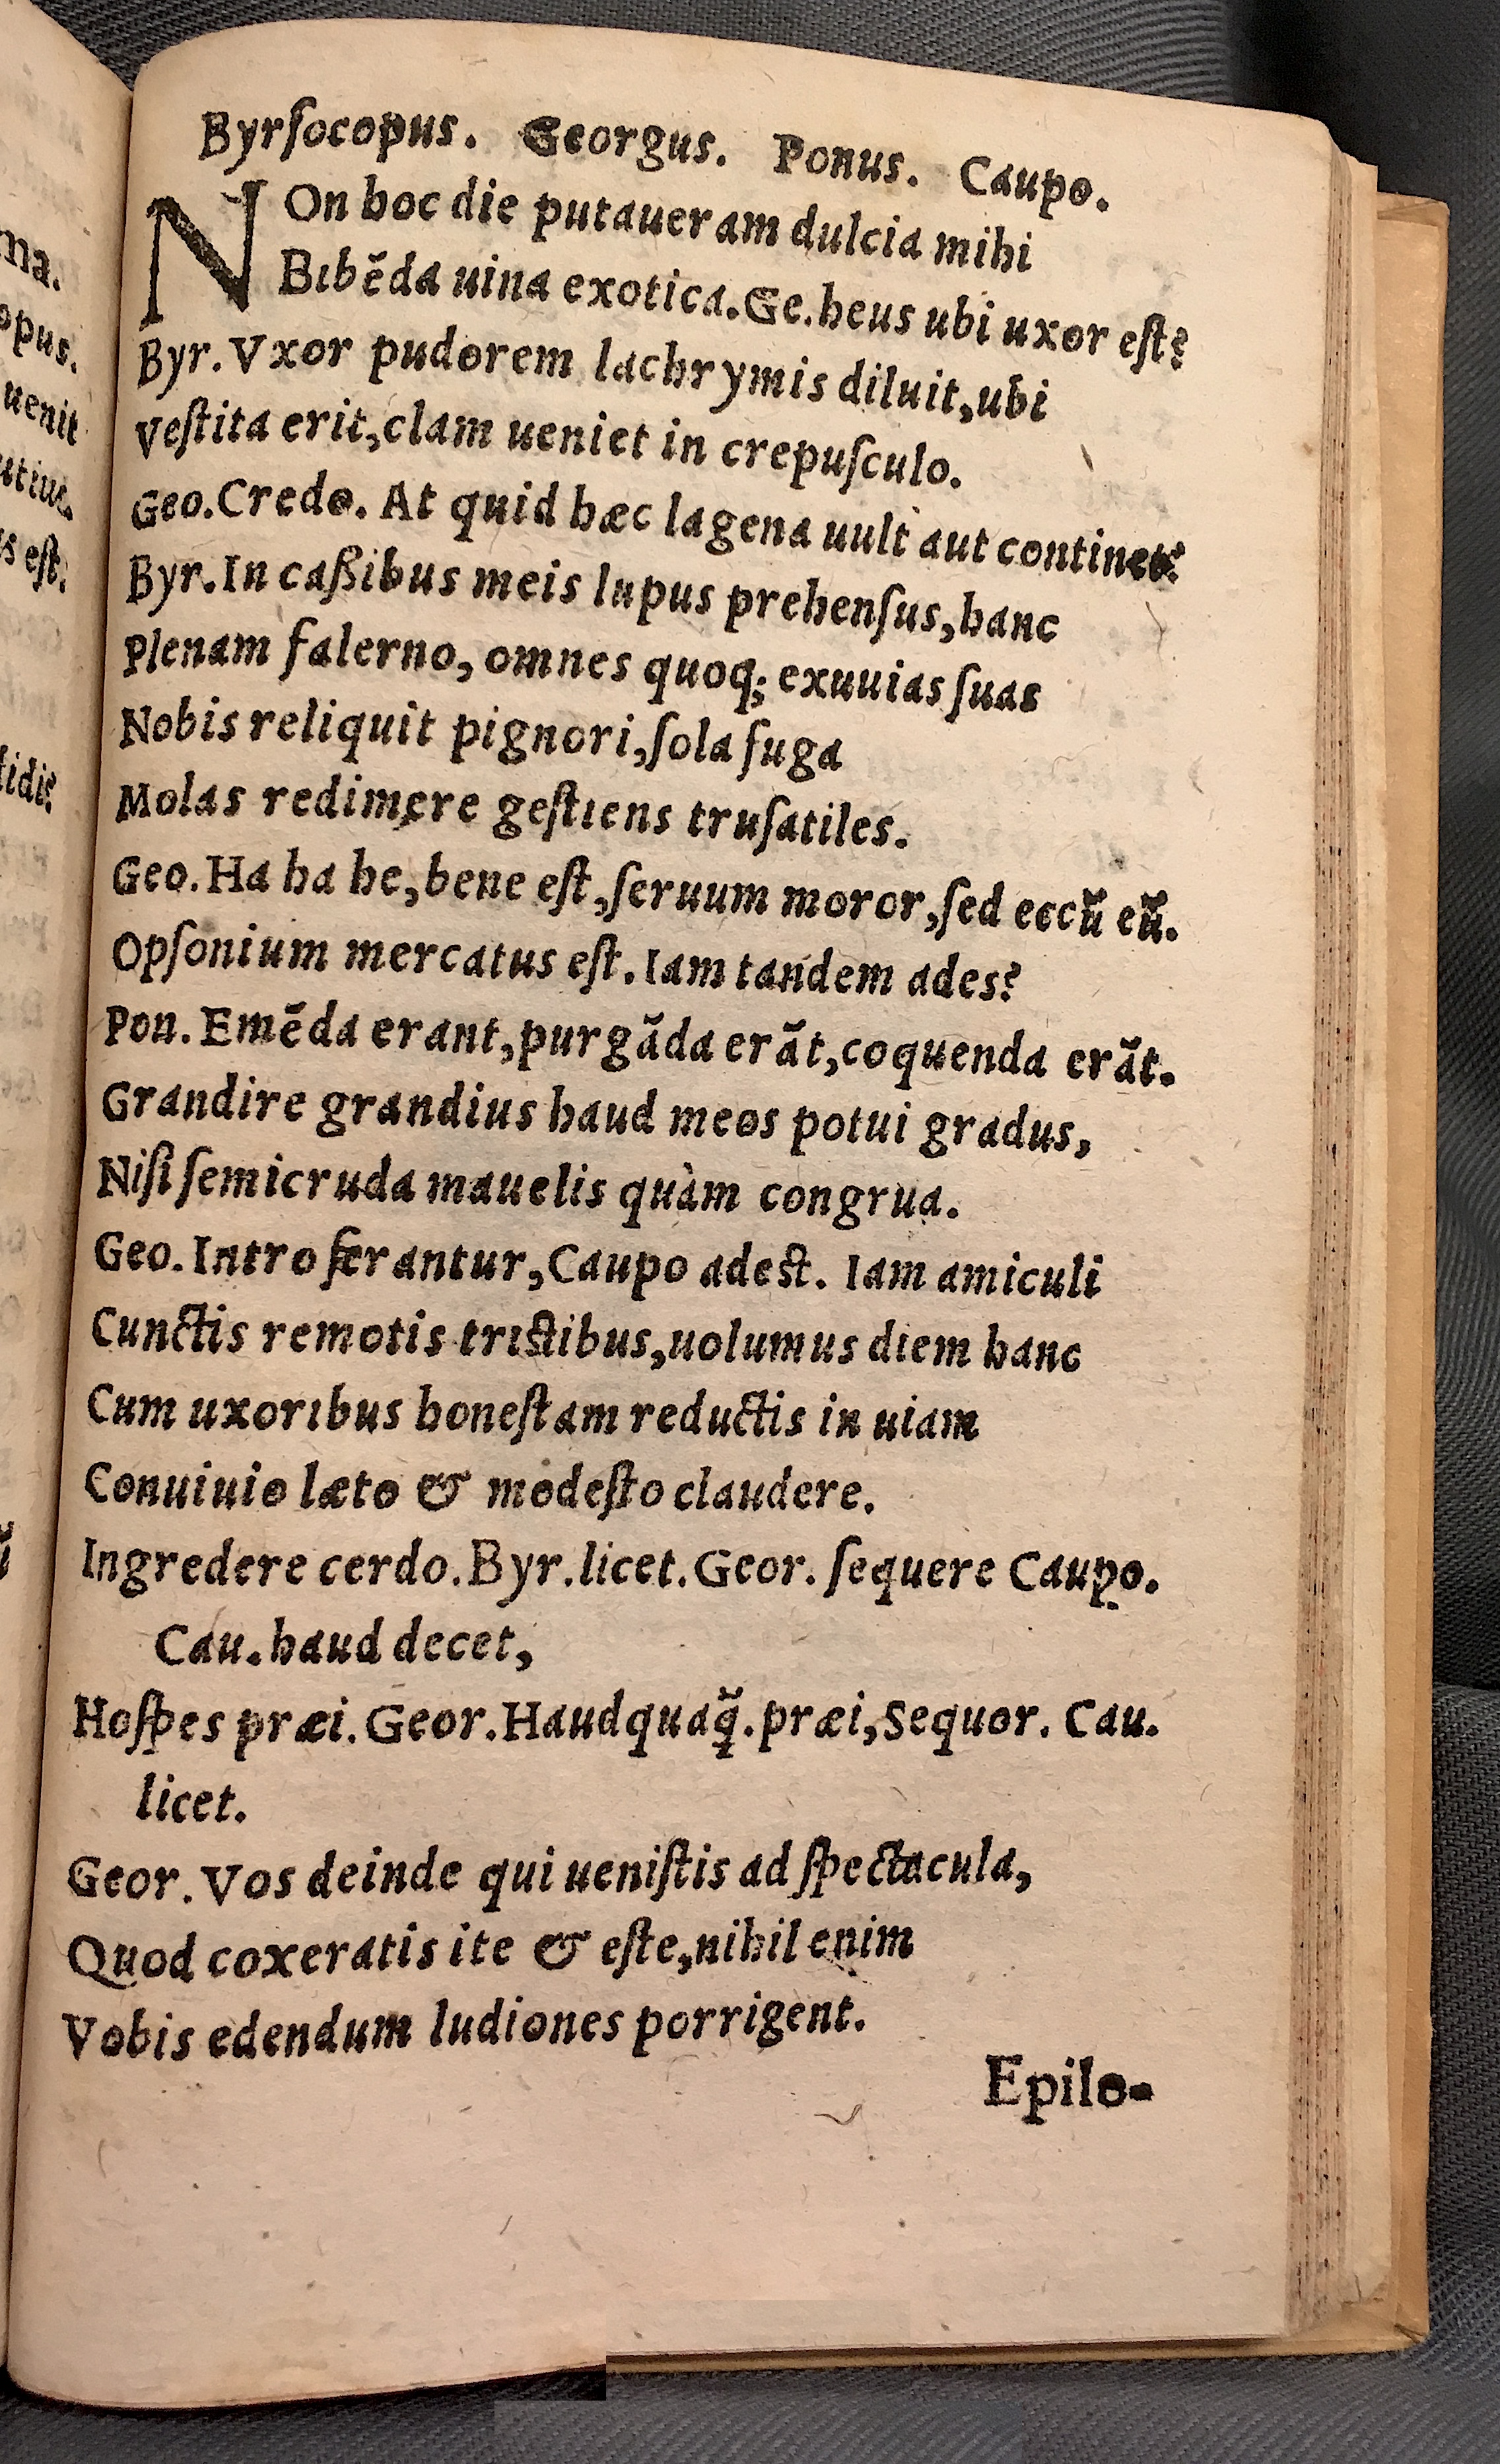 Byrſocopus. Georgus. Ponus. Caupo.
NOn hoc die putaueram dulcia mihi
Bibēda uina exotica.Ge.heus ubi uxor eſt?
Byr.Vxor pudorem lachrymis diluit,ubi
Veſtita erit,clam ueniet in crepuſculo.
Geo.Credo. At quid hæc lagena uult aut continet?
Byr.In caßibus meis lupus prehenſus,hanc
Plenam falerno, omnes quoq; exuuias ſuas
Nobis reliquit pignori,ſola fuga
Molas redimere geſtiens truſatiles.
Geo.Ha ha he,bene eſt,ſeruum moror,ſed eccũ eũ.
Opſonium mercatus eſt.Iam tandem ades?
Pon.Emēda erant,purgãda erãt,coquenda erãt.
Grandire grandius haud meos potui gradus,
Niſi ſemicruda mauelis quàm congrua.
Geo.Intro ferantur,Caupo adest. Iam amiculi
Cunctis remotis tristibus,uolumus diem hanc
Cum uxoribus honeſtam reductis in uiam
Conuiuio læto & modeſto claudere.
Ingredere cerdo.Byr.licet.Geor. ſequere Caupo.
Cau.haud decet,
Hoſpes præi.Geor.Haudquaq̃.præi,Sequor. Cau.
licet.
Geor.Vos deinde qui ueniſtis ad ſpectacula,
Quod coxeratis ite & eſte,nihil enim
Vobis edendum ludiones porrigent.
Epilo-